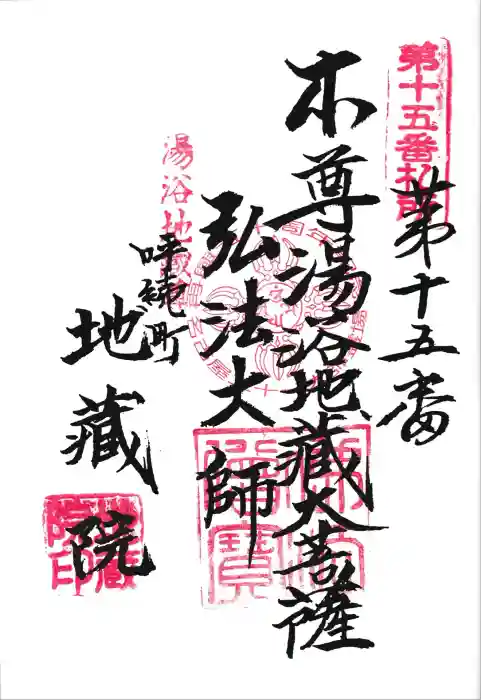 第十五番
第十五番札所
本尊湯浴地蔵大菩薩
弘法大師
湯浴地蔵
呼続町
地藏院
地藏院印